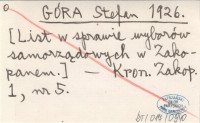 GÓRA Stefan 1926.
[List w sprawie wyborów
samorządowych w Zako-
panem.] — Kron. Zakop.
1, nr 5.